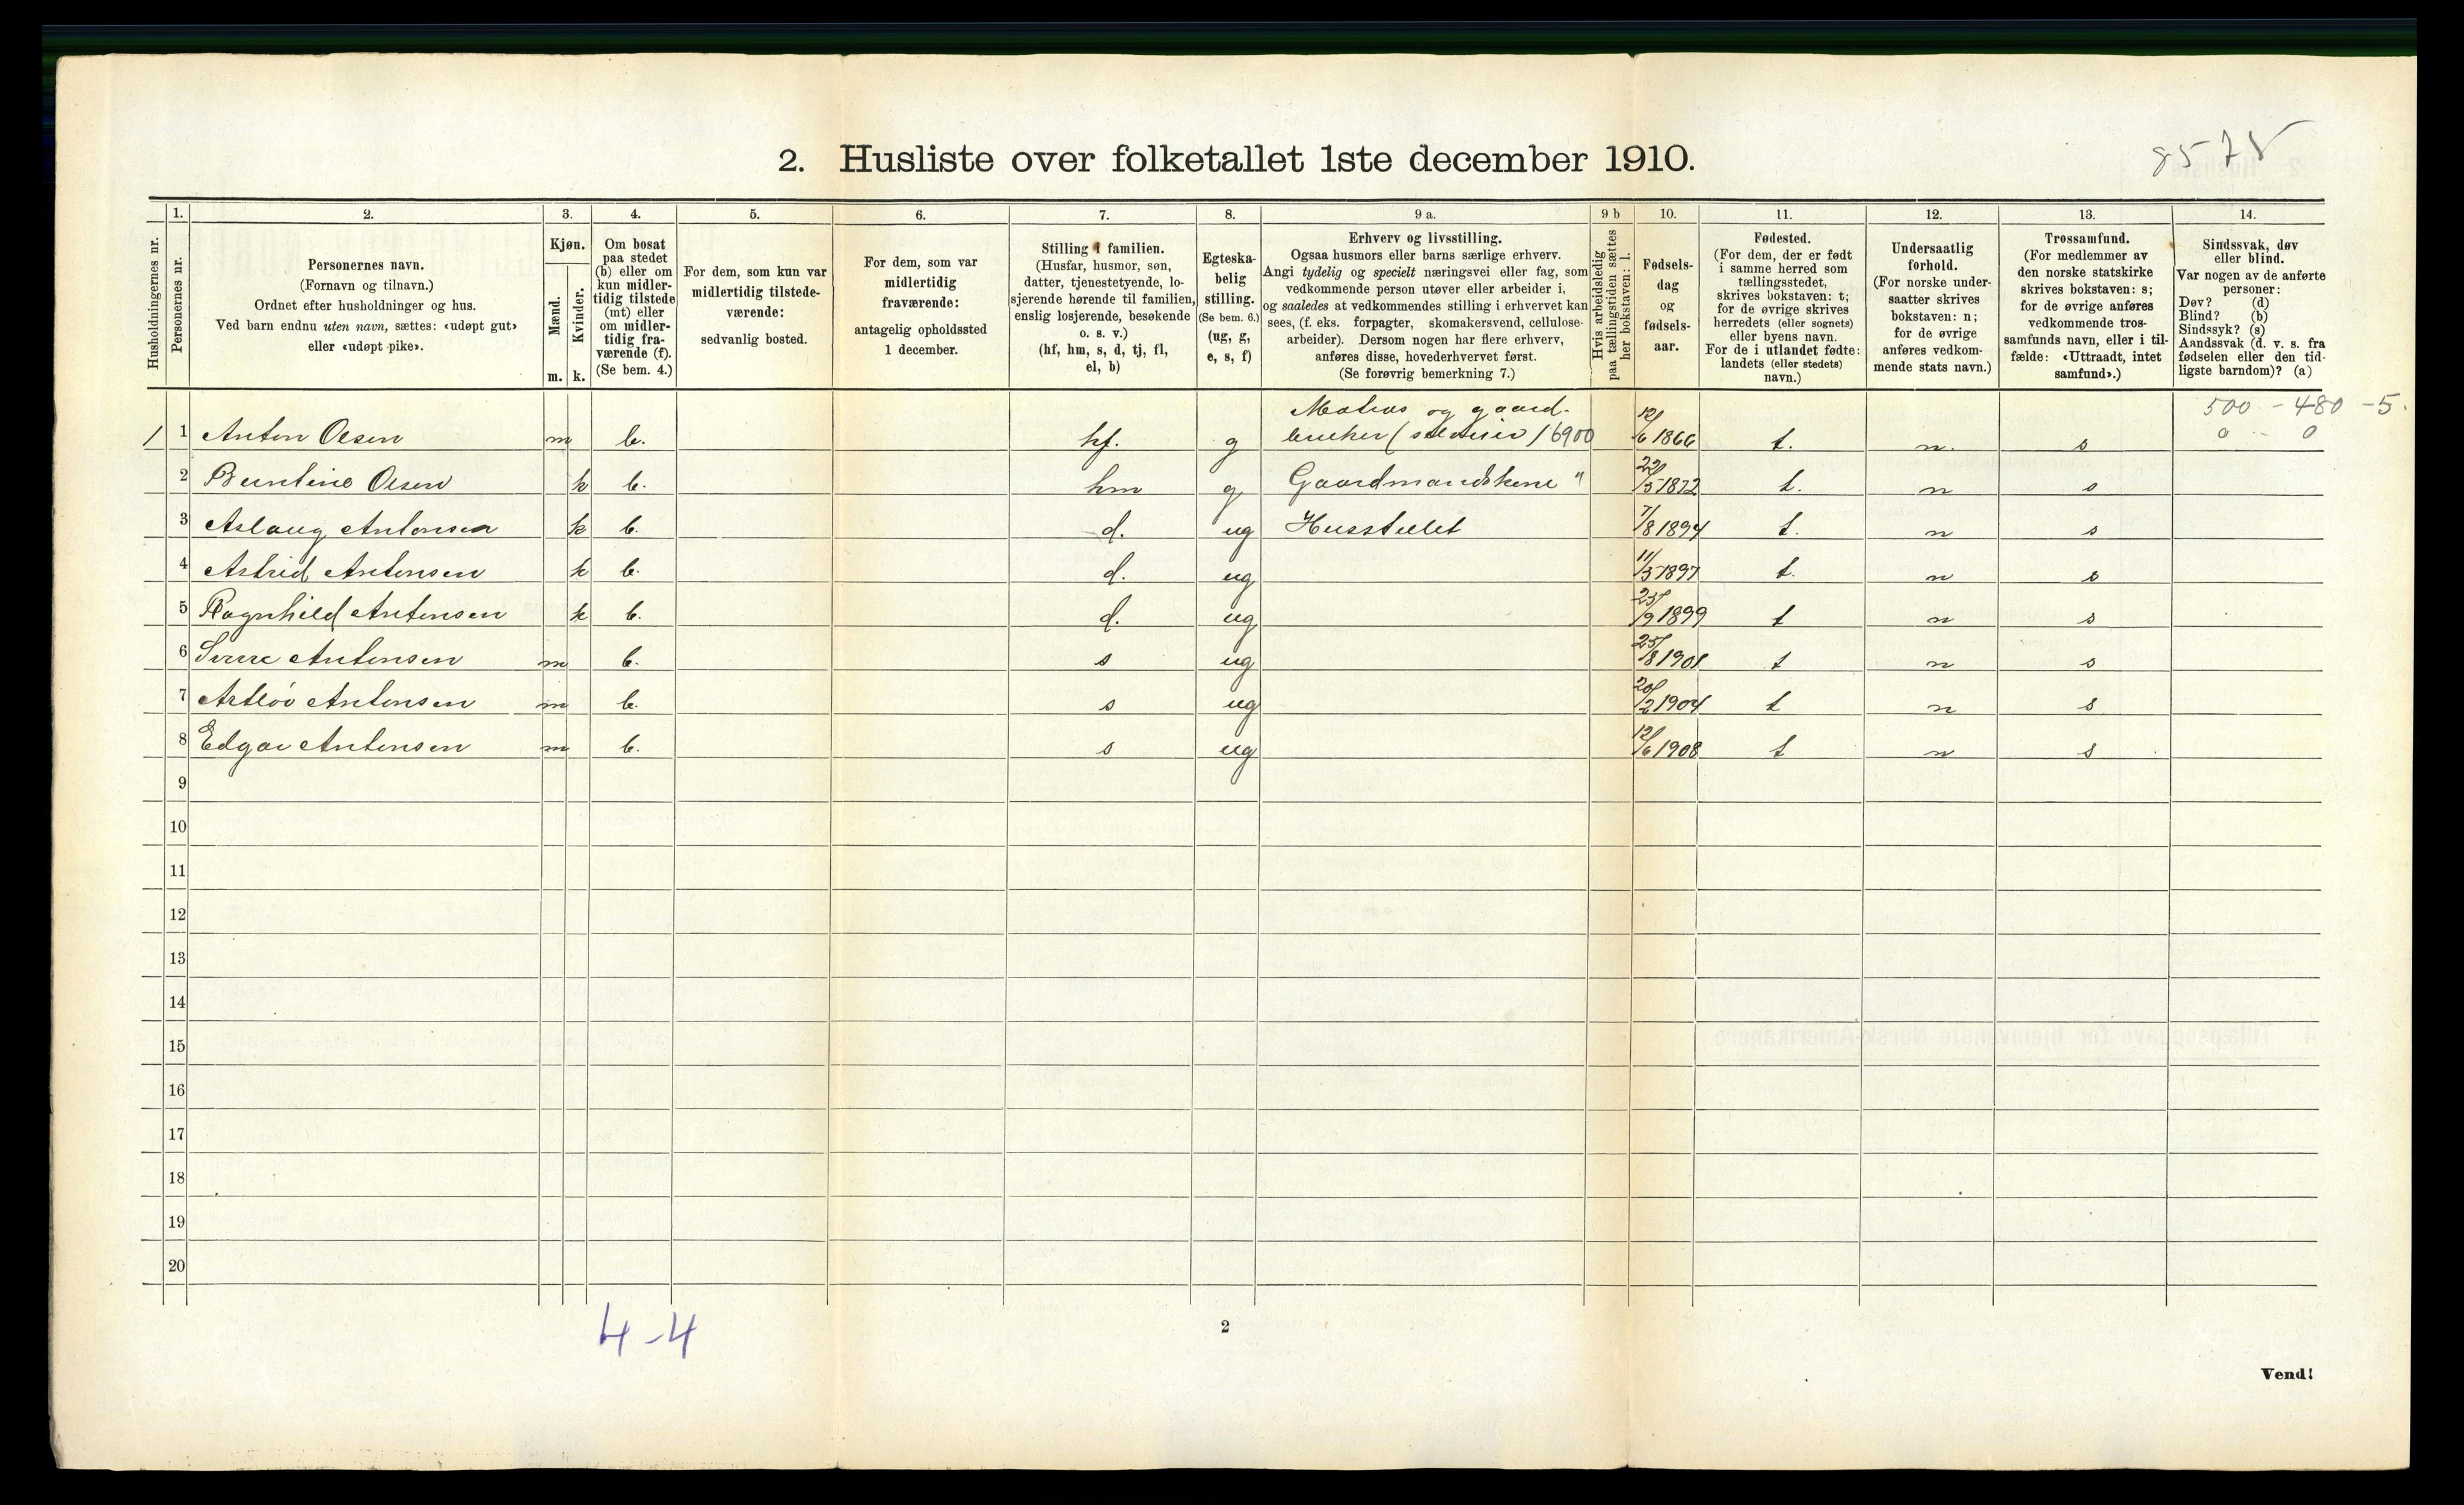 8578
2. Husliste over folketallet 1ste december 1910.
Husholdningernes nr.
1.
Personernes nr.
2.
Personernes navn.
(Fornavn og tilnavn.)
Ordnet efter husholdninger og hus.
Ved barn endnu uten navn, sættes: «udøpt gut»
eller «udøpt pike».
3.
Kjøn.
Mænd.
Kvinder.
m. k.
4.
Om bosat
paa stedet
(b) eller om
kun midler-
tidig tilstede
(mt) eller
om midler-
tidig fra-
værende (f).
(Se bem. 4.)
5.
For dem, som kun var
midlertidig tilstede-
værende:
sedvanlig bosted.
6.
For dem, som var
midlertidig
fraværende:
antagelig opholdssted
1 december.
7.
Stilling i familien.
(Husfar, husmor, søn,
datter, tjenestetyende, lo-
sjerende hørende til familien,
enslig losjerende, besøkende
o. s. v.)
(hf, hm, s, d, tj, fl,
el, b)
8.
Egteska-
belig
stilling.
(Se bem. 6.)
(ug, g,
e, s, f)
9 a.
Erhverv og livsstilling.
Ogsaa husmors eller barns særlige erhverv.
Angi tydelig og specielt næringsvei eller fag, som
vedkommende person utøver eller arbeider i,
og saaledes at vedkommendes stilling i erhvervet kan
sees, (f. eks. forpagter, skomakersvend, cellulose-
arbeider). Dersom nogen har flere erhverv,
anføres disse, hovederhvervet først.
(Se forøvrig bemerkning 7.)
9 b
Hvis arbeidsledig
paa tællingstiden sættes
her bokstaven: l.
10.
Fødsels-
dag
og
fødsels-
aar.
11.
Fødested.
(For dem, der er født
i samme herred som
tællingsstedet,
skrives bokstaven: t;
for de øvrige skrives
herredets (eller sognets)
eller byens navn.
For de i utlandet fødte:
landets (eller stedets)
navn.)
12.
Undersaatlig
forhold.
(For norske under-
saatter skrives
bokstaven: n;
for de øvrige
anføres vedkom-
mende stats navn.)
13.
Trossamfund.
(For medlemmer av
den norske statskirke
skrives bokstaven: s;
for de øvrige anføres
vedkommende tros-
samfunds navn, eller i til-
fælde: «Uttraadt, intet
samfund».)
14.
Sindssvak, døv
eller blind.
Var nogen av de anførte
personer:
Døv? (d)
Blind? (b)
Sindssyk? (s)
Aandssvak (d. v. s. fra
fødselen eller den tid-
ligste barndom)? (a)
Matros og gaard- 500 - 480 - 5.
1 1 Anton Olsen m b. hf. g bruker (seleier) 6900 12/6 1866 t. n. s 0 - 0
2 Berntine Olsen k b. hm g Gaardmandskone " 22/5 1872 t. n s
3 Aslaug Antonsen k b. d. ug Husstellet 7/8 1894 t. n s
4 Astrid Antonsen k b. d. ug 11/5 1897 t. n s
5 Ragnhild Antonsen k b. d. ug 25/9 1899 t n s
6 Sverre Antonsen m b. s ug 25/8 1901 t n s
7 Astløv Antonsen m b. s ug 20/2 1904 t n s
8 Edgar Antonsen m b. s ug 12/6 1908 t n s
9
10
11
12
13
14
15
16
17
18
19
20
4-4
2
Vend!